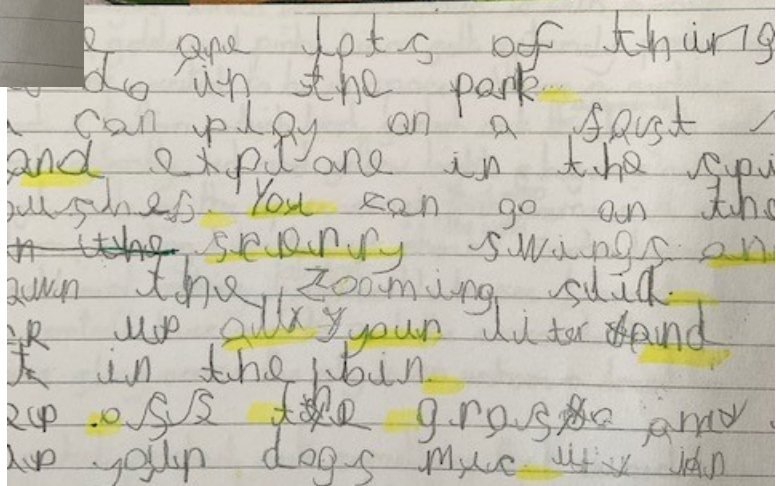 are lots of thing
do in the park
can play on a fast
and explore in the spi
bushes. You can go on the
the screrry swings an
down the zooming slid.
up all your liter and
in the bin.
off the grass and
up your dogs muc